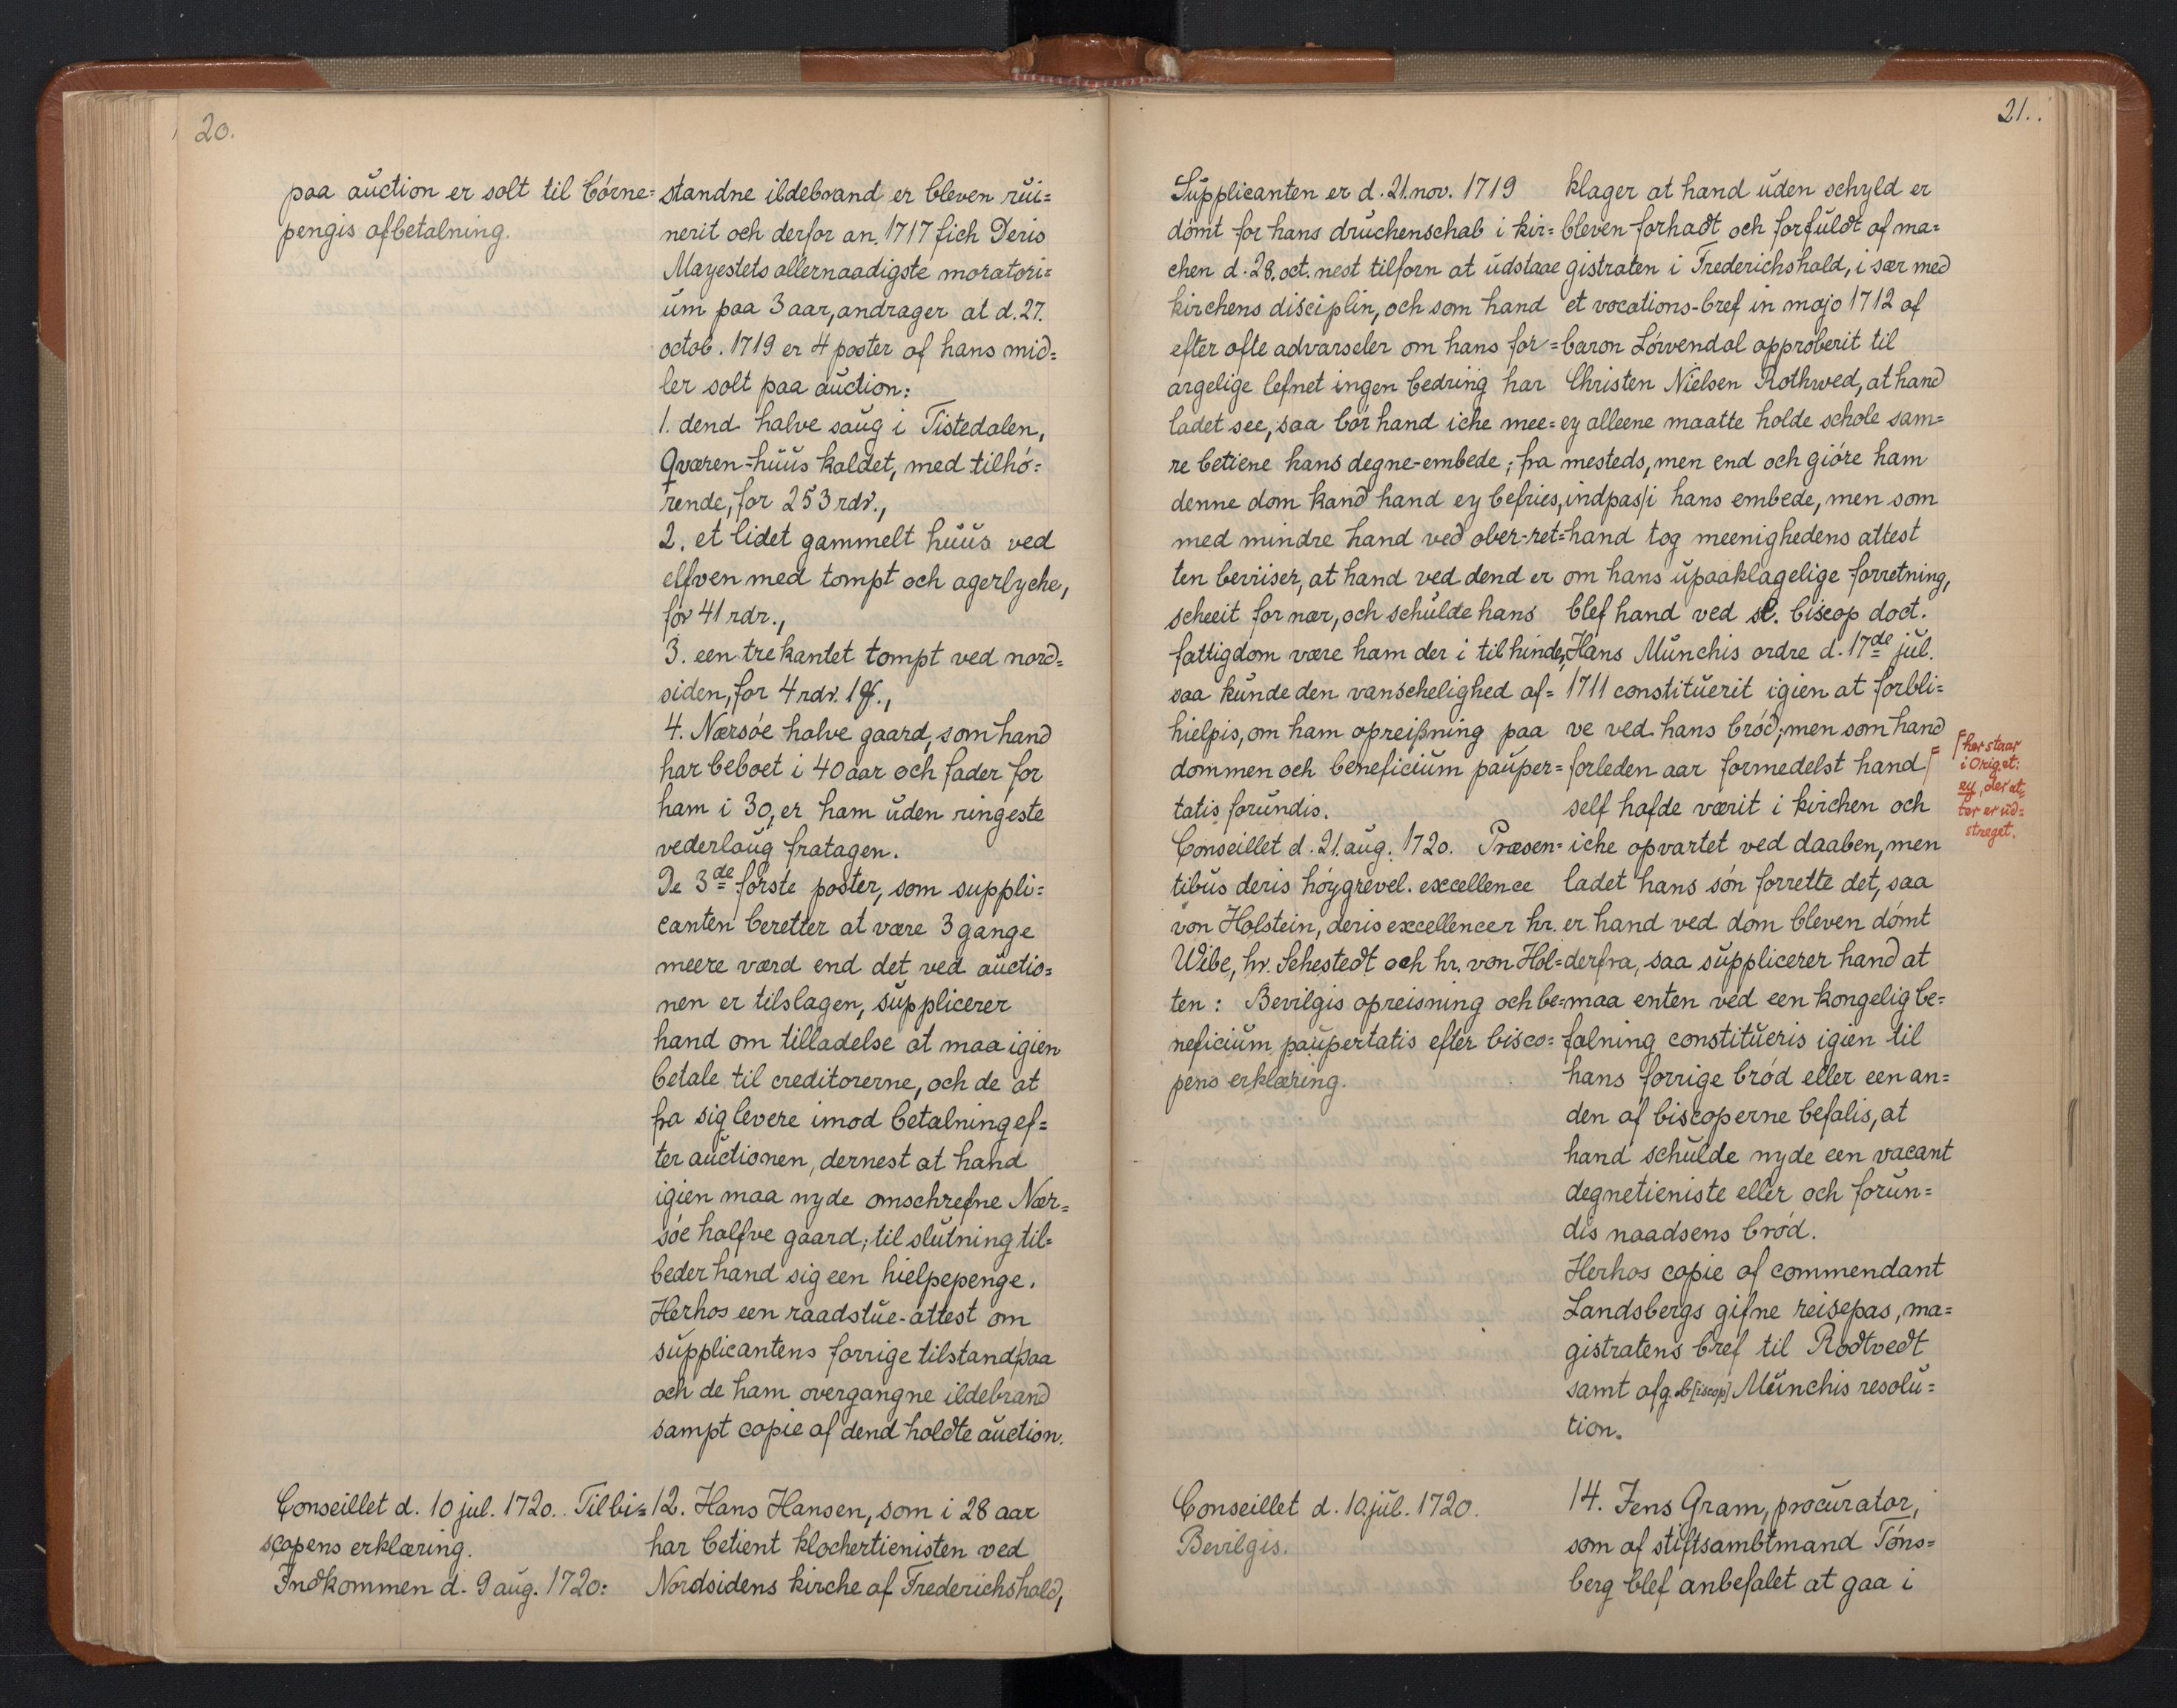 20.
paa auction er solt til börne=
pengis afbetalning.
standne ildebrand er bleven rui=
nerit och derfor an. 1717 fich Deris
Mayestets allernaadigste moratori=
um paa 3 aar, andrager at d. 27.
octob. 1719 er 4 poster af hans mid=
ler solt paa auction:
1. dend halve saug i Tistedalen,
Qværen-huus kaldet, med tilhö=
rende, for 253 rdr.,
2. et lidet gammelt huus ved
elfven med tompt och agerlyche,
for 41 rdr.,
3. een trekantet tompt ved nord=
siden, for 4 rdr. 1
4. Nærsöe halve gaard, som hand
har beboet i 40 aar och fader for
ham i 30, er ham uden ringeste
vederlaug fratagen.
De 3de förste poster, som suppli=
canten beretter at være 3 gange
meere værd end det ved auctio=
nen er tilslagen, supplicerer
hand om tilladelse at maa igien
betale til creditorerne, och de at
fra sig levere imod betalning ef=
ter auctionen, dernest at hand
igien maa nyde omschrefne Nær=
söe halfve gaard; til slutning til=
beder hand sig een hielpepenge.
Herhos een raadstue-attest om
supplicantens forrige tilstand paa
och de ham overgangne ildebrand
sampt copie af dend holdte auction.
Conseillet d. 10 jul. 1720. Til bi=
scopens erklæring.
Indkommen d. 9 aug. 1720:
12. Hans Hansen, som i 28 aar
har betient klochertienisten ved
Nordsidens kirche af Frederichshald,
21.
Supplicanten er d. 21. nov. 1719
dömt for hans druchenschab i kir=
chen d. 28. oct. nest tilforn at udstaae
kirchens disciplin, och som hand
efter ofte advarseler om hans for=
argelige lefnet ingen bedring har
ladet see, saa bör hand iche mee=
re betiene hans degne-embede; fra
denne dom kand hand ey befries,
med mindre hand ved ober-ret=
ten beviiser, at hand ved dend er
scheeit for nær, och schulde hans
fattigdom være ham der i til hinder,
saa kunde den vanschelighed af=
hielpis, om ham opreißning paa
dommen och beneficium pauper=
tatis forundis.
Conseillet d. 21. aug. 1720. Præsen=
tibus deris höygrevel. excellence
von Holstein, deris excellencer hr.
Wibe, hr. Sehestedt och hr. von Hol=
ten: Bevilgis opreisning och be=
neficium paupertatis efter bisco=
pens erklæring.
klager at hand uden schyld er
bleven forhadt och forfuldt af ma=
gistraten i Frederichshald, i sær med
et vocations-bref in majo 1712 af
baron Löwendal approberit til
Christen Nielsen Rothwed, at hand
ey alleene maatte holde schole sam=
mesteds, men end och giöre ham
indpas/i hans embede, men som
hand tog meenighedens attest
om hans upaaklagelige forretning,
blef hand ved sl. biscop doct.
Hans Munchis ordre d. 17de jul.
1711 constituerit igien at forbli=
ve ved hans bröd; men som hand
forleden aar formedelst hand ⌈
self hafde værit i kirchen och
iche opvartet ved daaben, men
ladet hans sön forrette det, saa
er hand ved dom bleven dömt
derfra, saa supplicerer hand at
maa enten ved een kongelig be=
falning constitueris igien til
hans forrige bröd eller een an=
den af biscoperne befalis, at
hand schulde nyde een vacant
degnetieniste eller och forun=
dis naadsens bröd.
Herhos copie af commendant
Landsbergs gifne reisepas, ma=
gistratens bref til Rodtvedt
samt afg. b[iscop] Munchis resolu=
tion.
⌈ her staar
i Orig. et:
ey, der at=
ter er ud=
streget.
Conseillet d. 10. jul. 1720.
Bevilgis.
14. Jens Gram, procurator,
som af stiftsambtmand Töns=
berg blef anbefalet at gaa i